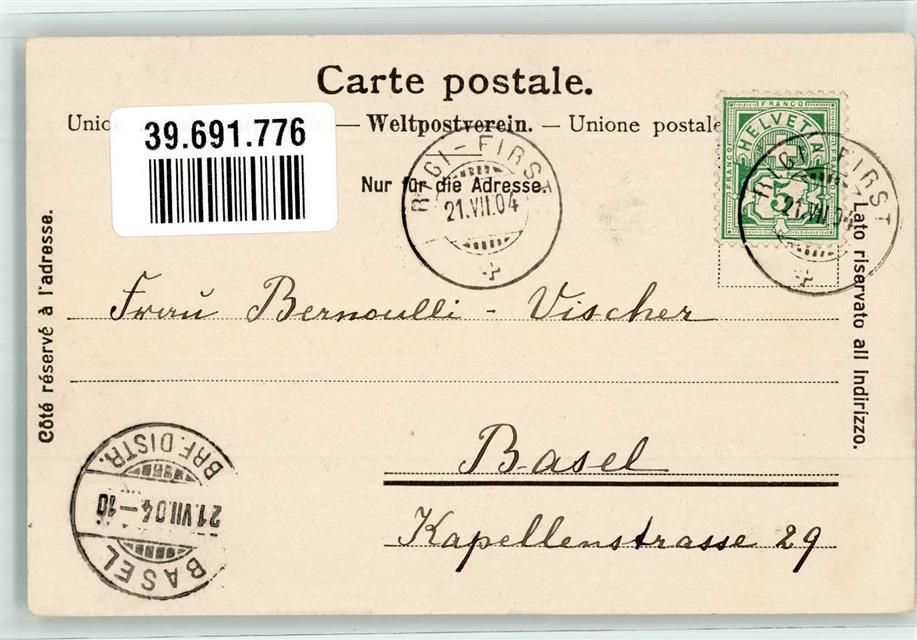 Carte postale.
39.691.776
Unio — Weltpostverein. — Unione postale
Nur für die Adresse.
RIGI-FIRST
21.VII.04
FRANCO
HELVETIA
FRANCO
FRANCO
5
RIGI-FIRST
21.VII.04
Côté réservé à l'adresse.
Lato riservato all Indirizzo.
Frau Bernoulli - Vischer
Basel
Kapellenstrasse 29
BASEL
21.VII.04-10
BRF.DISTR.